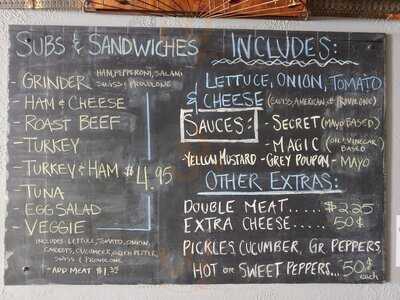 SUBS & SANDWICHES
- GRINDER HAM, PEPPERONI, SALAMI
SWISS & PROVOLONE
- HAM & CHEESE
- ROAST BEEF
- TURKEY
- TURKEY & HAM $4.95
- TUNA
- EGG SALAD
- VEGGIE
INCLUDES: LETTUCE, TOMATO, ONION,
CARROTS, CUCUMBER, GREEN PEPPER,
SWISS & PROVOLONE
- ADD MEAT $1.35
INCLUDES:
LETTUCE, ONION, TOMATO
& CHEESE (SWISS, AMERICAN, & PROVOLONE)
SAUCES: - SECRET (MAYO BASED)
- MAGIC (OIL & VINEGAR BASED)
- YELLOW MUSTARD - GREY POUPON - MAYO
OTHER EXTRAS:
DOUBLE MEAT..... $2.25
EXTRA CHEESE..... 50¢
PICKLES, CUCUMBER, GR PEPPERS,
HOT OR SWEET PEPPERS... 50¢ each